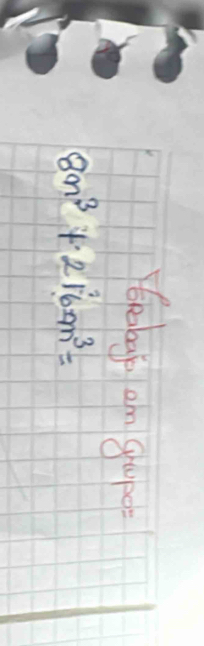 Trabajo em grupo=
8n³ + 216m³=